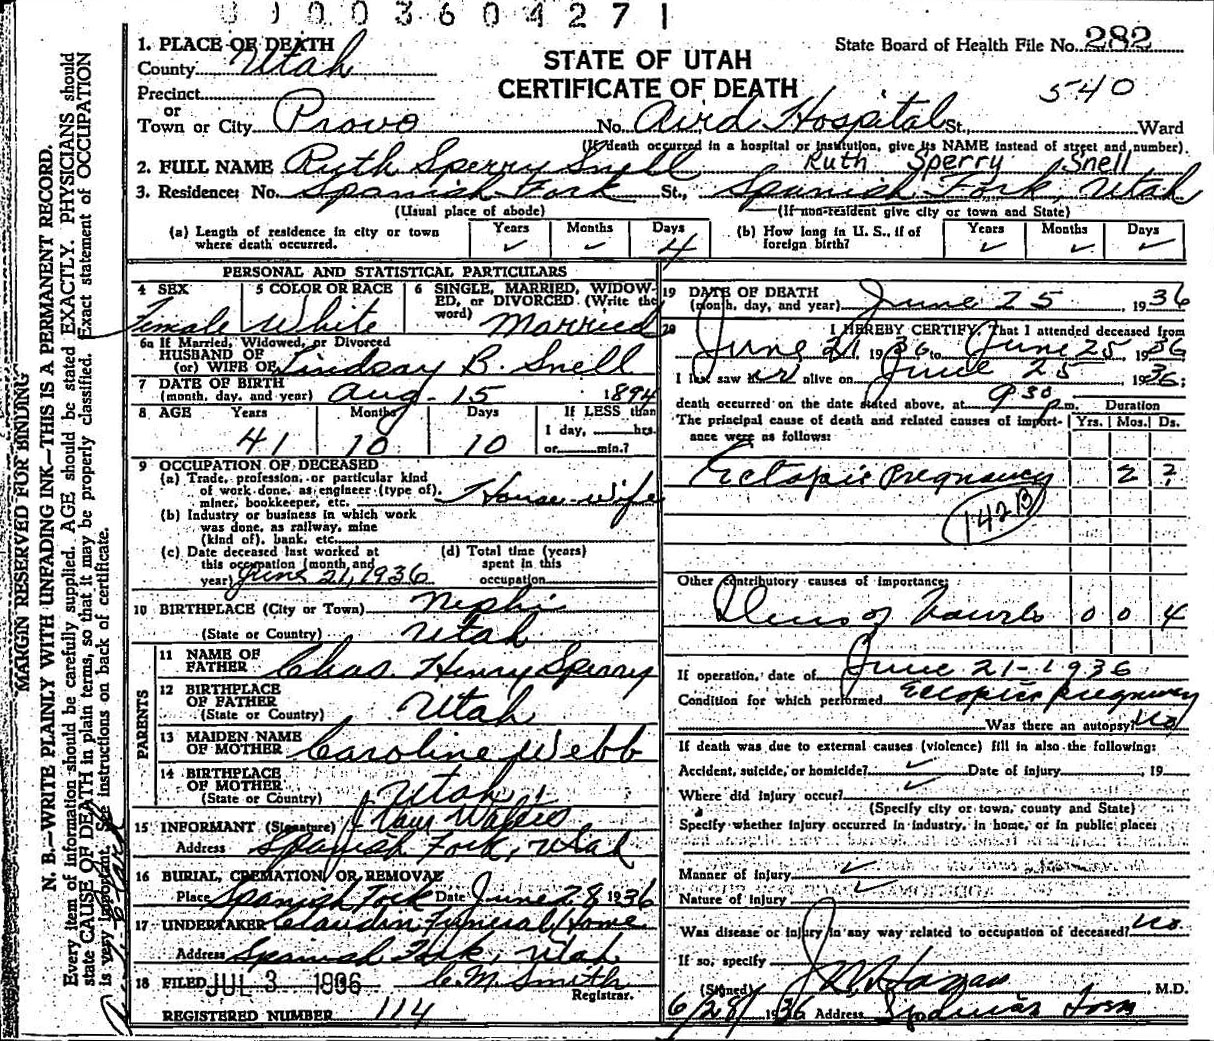 0 1 0 0 3 6 0 4 2 7 1
State Board of Health File No. 282
540
STATE OF UTAH
CERTIFICATE OF DEATH
1. PLACE OF DEATH
County Utah
Precinct
or
Town or City Provo No. Aird Hospital St., Ward
(If death occurred in a hospital or institution, give its NAME instead of street and number).
2. FULL NAME Ruth Sperry Snell Ruth Sperry Snell
3. Residence: No. Spanish Fork St., Spanish Fork, Utah
(Usual place of abode) (If non-resident give city or town and State)
(a) Length of residence in city or town where death occurred. Years ✓ Months ✓ Days 4
(b) How long in U. S., if of foreign birth? Years ✓ Months ✓ Days ✓
PERSONAL AND STATISTICAL PARTICULARS
4 SEX Female
5 COLOR OR RACE White
6 SINGLE, MARRIED, WIDOWED, or DIVORCED (Write the word) Married
6a If Married, Widowed, or Divorced
HUSBAND OF
(or) WIFE OF Lindsay B. Snell
7 DATE OF BIRTH
(month, day, and year) Aug. 15 1894
8 AGE Years 41 Months 10 Days 10 If LESS than 1 day, hrs. or min.?
9 OCCUPATION OF DECEASED
(a) Trade, profession, or particular kind
of work done, as engineer (type of),
miner, bookkeeper, etc. House-wife
(b) Industry or business in which work
was done, as railway, mine
(kind of), bank, etc.
(c) Date deceased last worked at
this occupation (month and
year) June 21, 1936
(d) Total time (years)
spent in this
occupation
10 BIRTHPLACE (City or Town) Nephi
(State or Country) Utah
PARENTS
11 NAME OF
FATHER Chas. Henry Sperry
12 BIRTHPLACE
OF FATHER
(State or Country) Utah
13 MAIDEN NAME
OF MOTHER Caroline Webb
14 BIRTHPLACE
OF MOTHER
(State or Country) Utah
15 INFORMANT (Signature)
Address Spanish Fork, Utah
16 BURIAL, CREMATION, OR REMOVAL
Place Spanish Fork Date June 28, 1936
17 UNDERTAKER Claudin Funeral Home
Address Spanish Fork, Utah
18 FILED JUL 3 1936 C. M. Smith
Registrar.
REGISTERED NUMBER 114
19 DATE OF DEATH
(month, day, and year) June 25, 1936
20 I HEREBY CERTIFY, That I attended deceased from
June 21, 1936 to June 25, 1936
I last saw her alive on June 25 1936;
death occurred on the date stated above, at 9 30 p.m. Duration
The principal cause of death and related causes of importance were as follows: Yrs. Mos. Ds.
Ectopic Pregnancy 2 ?
142B
Other contributory causes of importance:
Ileus of Bowels 0 0 4
If operation, date of June 21-1936
Condition for which performed Ectopic pregnancy
Was there an autopsy? No
If death was due to external causes (violence) fill in also the following:
Accident, suicide, or homicide? ✓ Date of injury , 19
Where did injury occur? ✓
(Specify city or town, county and State)
Specify whether injury occurred in industry, in home, or in public place:
Manner of injury ✓
Nature of injury ✓
Was disease or injury in any way related to occupation of deceased? No.
If so, specify
(Signed) M.D.
6/28/1936 Address Spanish Fork
MARGIN RESERVED FOR BINDING
N. B.—WRITE PLAINLY WITH UNFADING INK—THIS IS A PERMANENT RECORD.
Every item of information should be carefully supplied. AGE should be stated EXACTLY. PHYSICIANS should
state CAUSE OF DEATH in plain terms, so that it may be properly classified. Exact statement of OCCUPATION
is very important. See instructions on back of certificate.